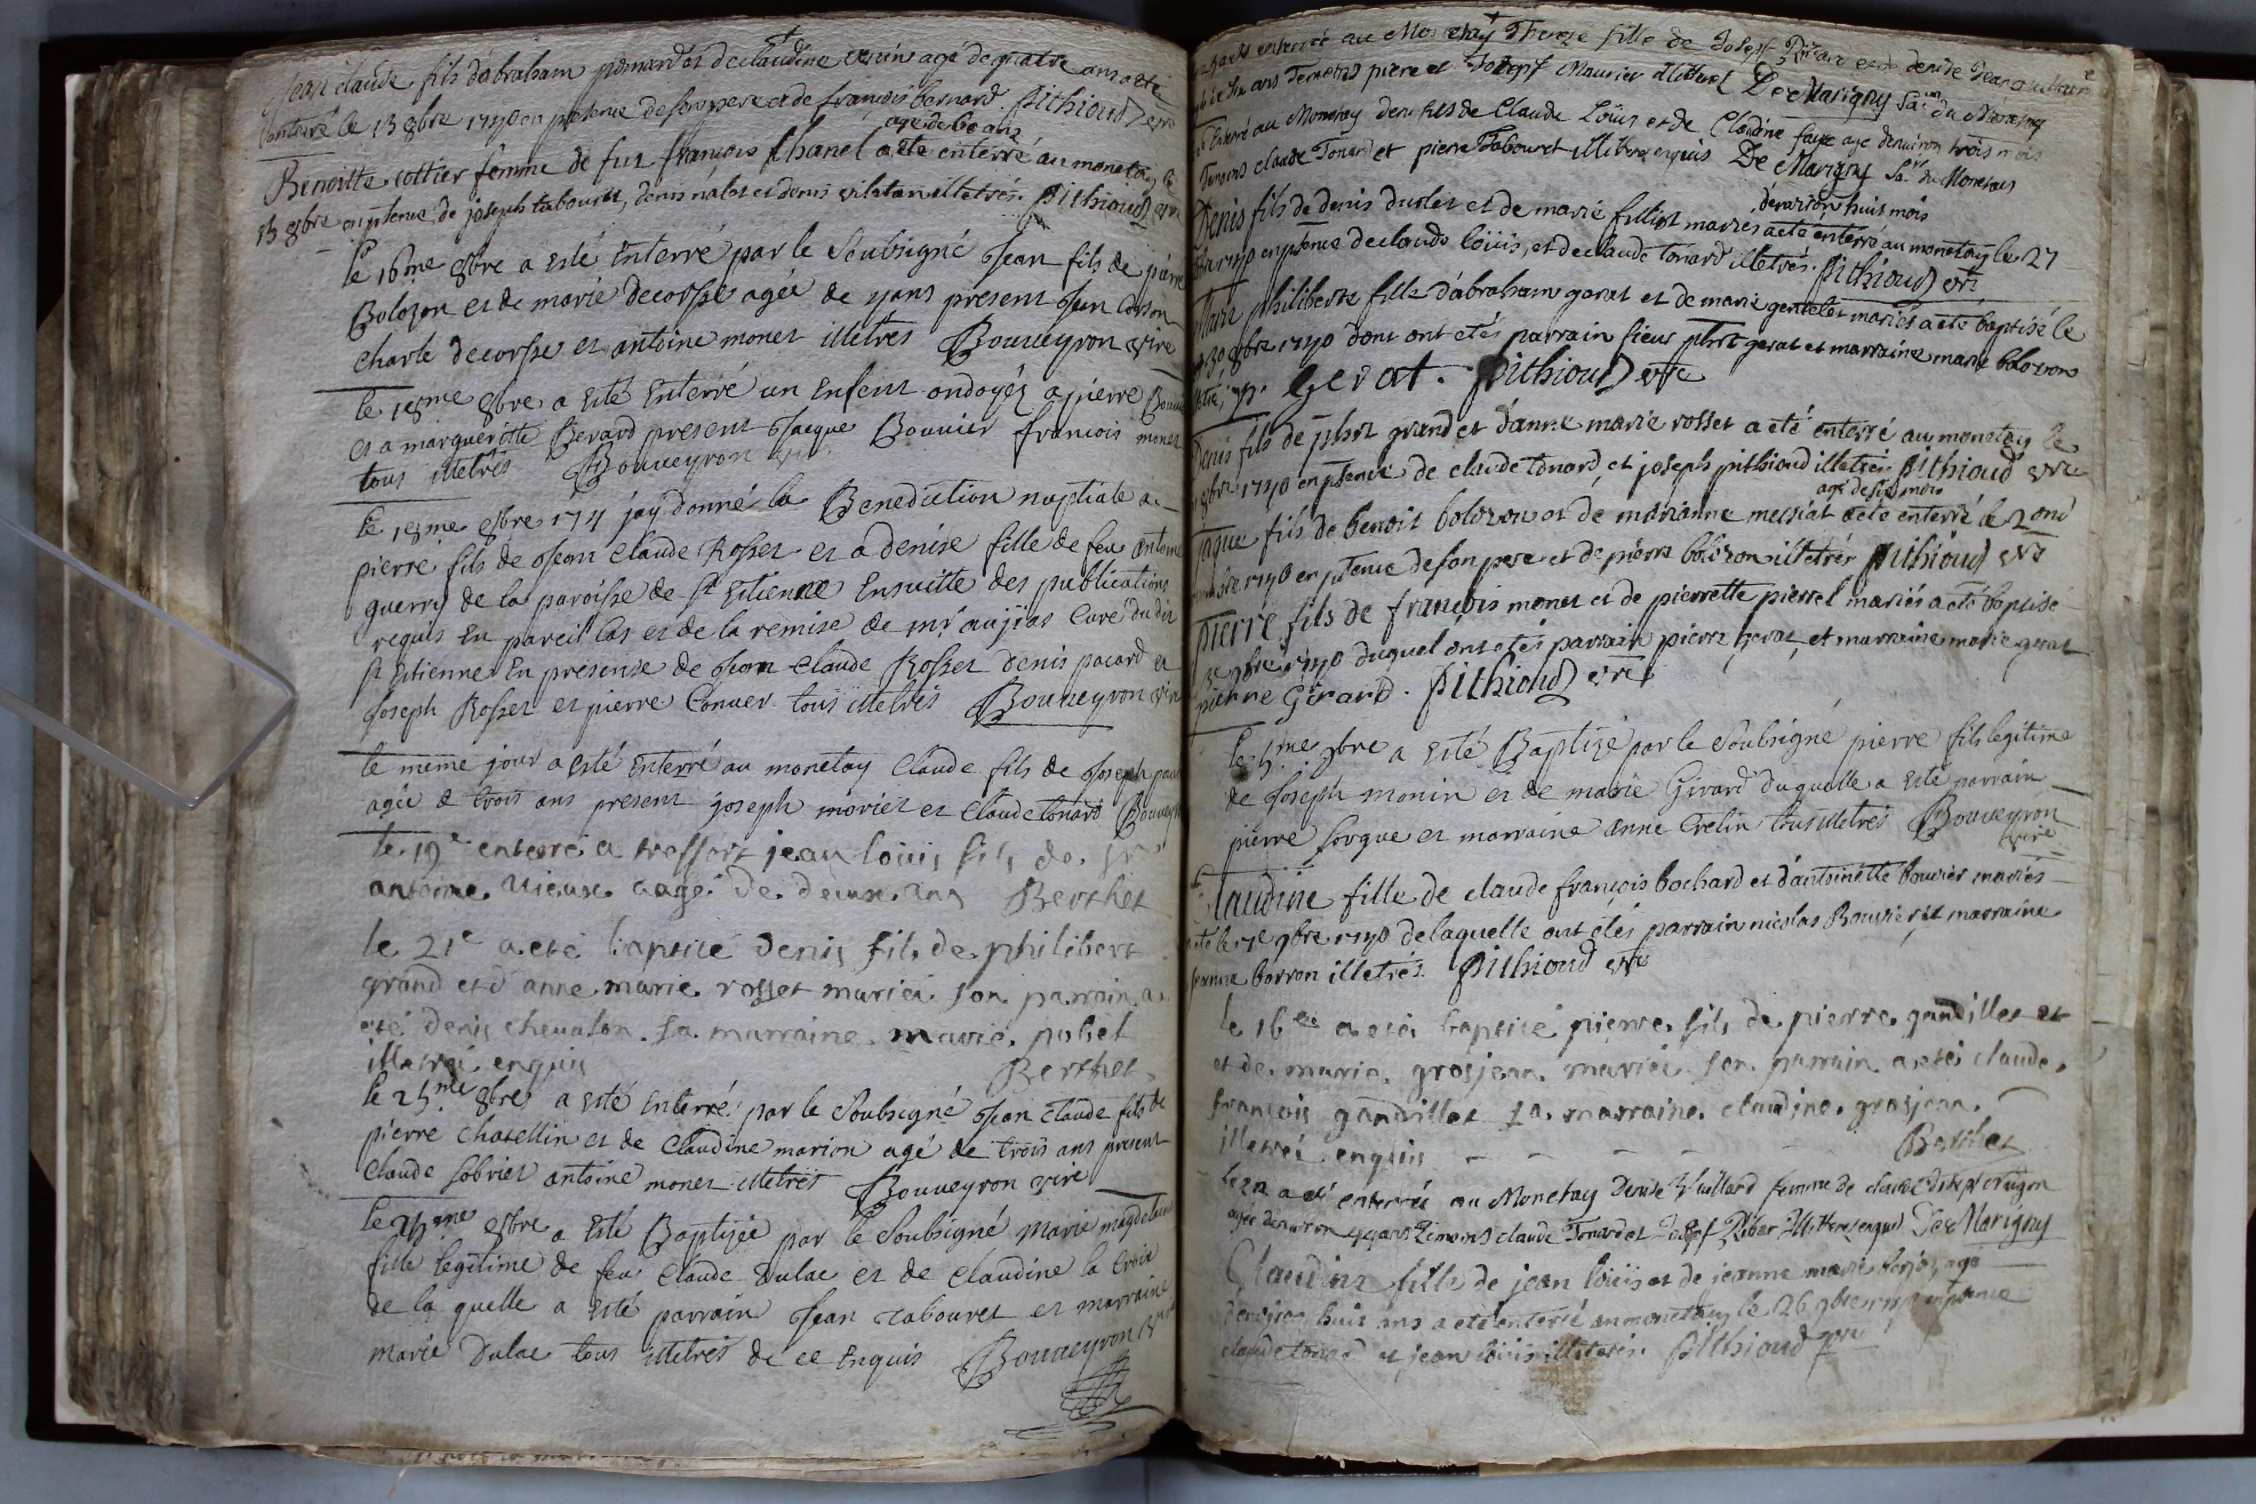 Jean claude fils d'abraham pomard et de claudine agé de quatre ans a eté
enterré le 13 8bre 1740 en présence de son pere et de françois bernard. Pithioud vre
age de 60 ans
Benoitte cottier femme de fut françois Chanel a ete enterré au monetay le
13 8bre en ptence de joseph tabouret, denis nalet et denis vilatan illetrés. Pithioud vre
le 16me 8bre a esté Enterré par le Soubsigné Jean fils de pierre
Bolozon et de marie decorsse agée de ans present Jean
charle decorsse et antoine monet illetres Bouveyron vire
le 18me 8bre a esté Enterré un Enfent ondoyéz a pierre
et a margueritte Berard present Jacque Bouvier francois monet
tous illetrés Bouveyron vir.
Le 18me 8bre 174 jay donné la Benediction nuptiale a
pierre fils de Jean Claude Rosset et a denise fille de feu antoine
guerry de la paroisse de st Etienne Ensuitte des publications
requis En pareil Cas et de la remise de mr aujias Curé du dit
st Etienne En presense de Jean Claude Rosset denis pacard et
Joseph Rosset et pierre Conver tous illetrés Bouveyron vir
le meme jour a esté enterré au monetay Claude fils de Joseph
agée de trois ans present joseph moriet et Claude tonard
le 19e enterré a treffort jean loüis fils de sr
antoine vieux aagé de deux ans Berthet
le 21e a eté baptizé denis fils de philibert
grand et d'anne marie rosset mariés son parrain a
eté denis chevalon. sa marraine marie pobel
illetrés enquis Berthet
le 25me 8bre a esté Enterré par le Soubsigné Jean Claude fils de
pierre Chatellin et de Claudine marion agé de trois ans present
Claude Sobriet antoine monet illetrés Bouveyron vire
le 25me 8bre a esté Baptizée par le Soubsigné Marie magdelaine
fille legitime de feu Claude Dulac et de Claudine la Croix
de la quelle a esté parrain Jean tabouret et marraine
marie Dulac tous illetrés de ce Enquis Bouveyron
enterré au Monetay Therese fille de Joseph et de denise
six ans Temoins piere et Joseph Maurier illitteré De Marigny du Monetay
Enterré au Monetay denis fils de Claude Loüis et de Claudine faure age denviron trois mois
Temoins claude Tonard et pierre Tabouret illiteres enquis De Marigny du Monetay
d'environ huit mois
Denis fils de denis duclet et de marie filliot mariés a eté enterré au monetay le 27
8bre 1740 en ptence de claude loüis, et de claude tonard illetrés. Pithioud vre
Marie philiberte fille d'abraham gerat et de marie gentelet mariés a eté baptisé le
30 8bre 1740 dont ont etés parrain sieur phrt gerat et marraine marie bolozon
p. Gerat. Pithioud vre
Denis fils de phrt grand et d'anne marie rosset a eté enterré au monetay le
8bre 1740 en ptence de claude tonard, et joseph pithioud illetrés Pithioud vre
agé de six mois
Jaque fils de benoit bolozon et de marianne messiat a eté enterré le 2ond
1740 en ptence de son pere et de pierre bolozon illetrés Pithioud vre
Pierre fils de françois monet et de pierrette pierrel mariés a eté baptisé
9bre 1740 duquel ont etés parrain pierre gerat, et marraine marie gerat
pierre Girard. Pithioud vre
le 5me 9bre a esté Baptizé par le Soubsigné pierre fils legitime
de Joseph monin et de marie Girard duquelle a esté parrain
pierre sorgue et marraine anne Crelin tous illetrés Bouveyron
vire
Claudine fille de claude françois bochard et d'antoinette bouvier mariés
le 7e 9bre 1740 de laquelle ont etés parrain nicolas Bouvier, et marraine
jeanne borron illetrés. Pithioud vre
le 16e a eté baptizé pierre fils de pierre gandillet et
et de marie grosjean mariés son parrain a eté claude
françois gandillet sa marraine claudine grosjean.
illetrés enquis Berthet
le 22 a eté enterrée au Monetay Denise Vuillard femme de claude
agée denviron 44 ans Temoins claude Tonard et Josepf illitteres enquis De Marigny
Claudine fille de jean loüis et de jeanne marie agé
d'environ huit ans a eté enterré au monetay le 26 9bre 1740 en ptence
claude tonard et jean loüis illetrés. Pithioud vre